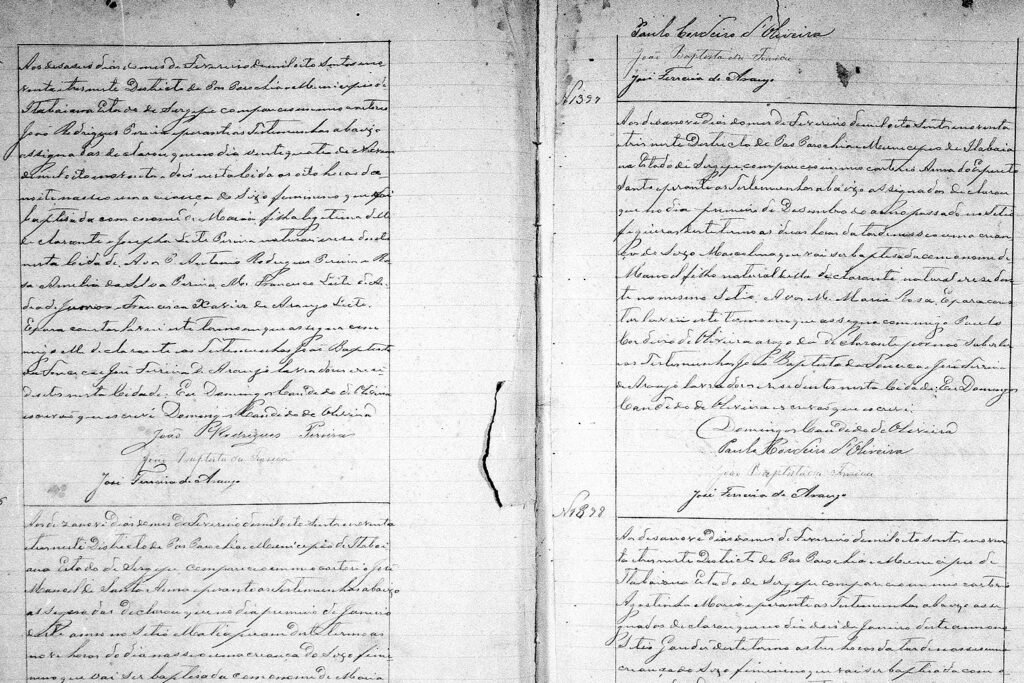 Aos deseseis dias do mes de Fevereiro de mil oito centos e no
venta e tres neste Districto de Paz Parochia e Municipio de
Itabaiana Estado de Sergipe compareceu no meu cartorio
João Rodrigues Pereira e perante as Testemunhas abaixo
assignadas declarou que no dia vente quatro de
de mil oito e noventa e dois nesta Cidade as oito horas da
noite nasceu uma criança do Sexo feminino que foi
baptisada com o nome de Maria filha legitima delle
declarante e Josepha Leite Pereira naturaes e residentes
nesta Cidade. Avos P. Antonio Rodrigues Pereira e Ro
sa Amelia da Silva Pereira. M. Francisco Leite de An
drade Junior e Francisca Xavier de Araujo Leite.
E para constar lavrei este termo em que assigna com
migo o declarante e as Testemunhas João Baptista
da Fonseca e José Ferreira de Araujo lavradores e resi
dentes nesta Cidade; Eu Domingos Candido de Oliveira
escrivão que escrevi Domingos Candido de Oliveira
João Rodrigues Pereira
João Baptista da Fonseca
José Ferreira de Araujo
Aos dezanove dias do mes de Fevereiro de mil oito centos e noventa
e tres neste Districto de Paz Parochia e Municipio de Itabai
ana Estado de Sergipe compareceu no meu cartorio José
Manoel de Santa Anna e perante as Testemunhas abaixo
assignadas declarou que no dia premeiro de Janeiro
deste anno no Sitio deste termo as
nove horas do dia nasceu uma criança do Sexo femi
nino que vai ser baptisada com o nome de Maria
Paulo Cordeiro d'Oliveira
João Baptista da Fonseca
José Ferreira de Araujo
N. 1397
Aos desanove dias do mes de Fevereiro de mil oito centos e noventa
e tres neste Districto de Paz Parochia e Municipio de Itabaia
na Estado de Sergipe compareceu no meu cartorio Anna do Espirito
Santo e perante as Testemunhas abaixo assignadas declarou
que no dia premeiro de Desembro do anno passado no Sitio
Figueiras deste termo as duas horas da tarde nasceu uma crian
ça do Sexo Masculino que vai ser baptisada com o nome de
Manoel filho natural della declarante natural e residen
te no mesmo Sitio. Avos M. Maria Rosa. E para cons
tar lavrei este termo em que assigna commigo Paulo
Cordeiro de Oliveira a rogo da declarante por não saber ler
e as Testemunhas João Baptista da Fonseca e José Ferreira
de Araujo lavradores e residentes nesta Cidade; Eu Domingos
Candido de Oliveira escrivão que escrevi.
Domingos Candido de Oliveira
Paulo Cordeiro d'Oliveira
João Baptista da Fonseca
José Ferreira de Araujo
N. 1398
Aos desanove dias do mes de Fevereiro de mil oito centos e noven
ta e tres neste Districto de Paz Parochia e Municipio de
Itabaiana Estado de Sergipe compareceu no meu cartorio
Agostinho Maria e perante as Testemunhas abaixo assi
gnadas declarou que no dia de Janeiro deste anno no
Sitio deste termo as tres horas da tarde nasceu uma
criança do Sexo feminino que vai ser baptisada com o